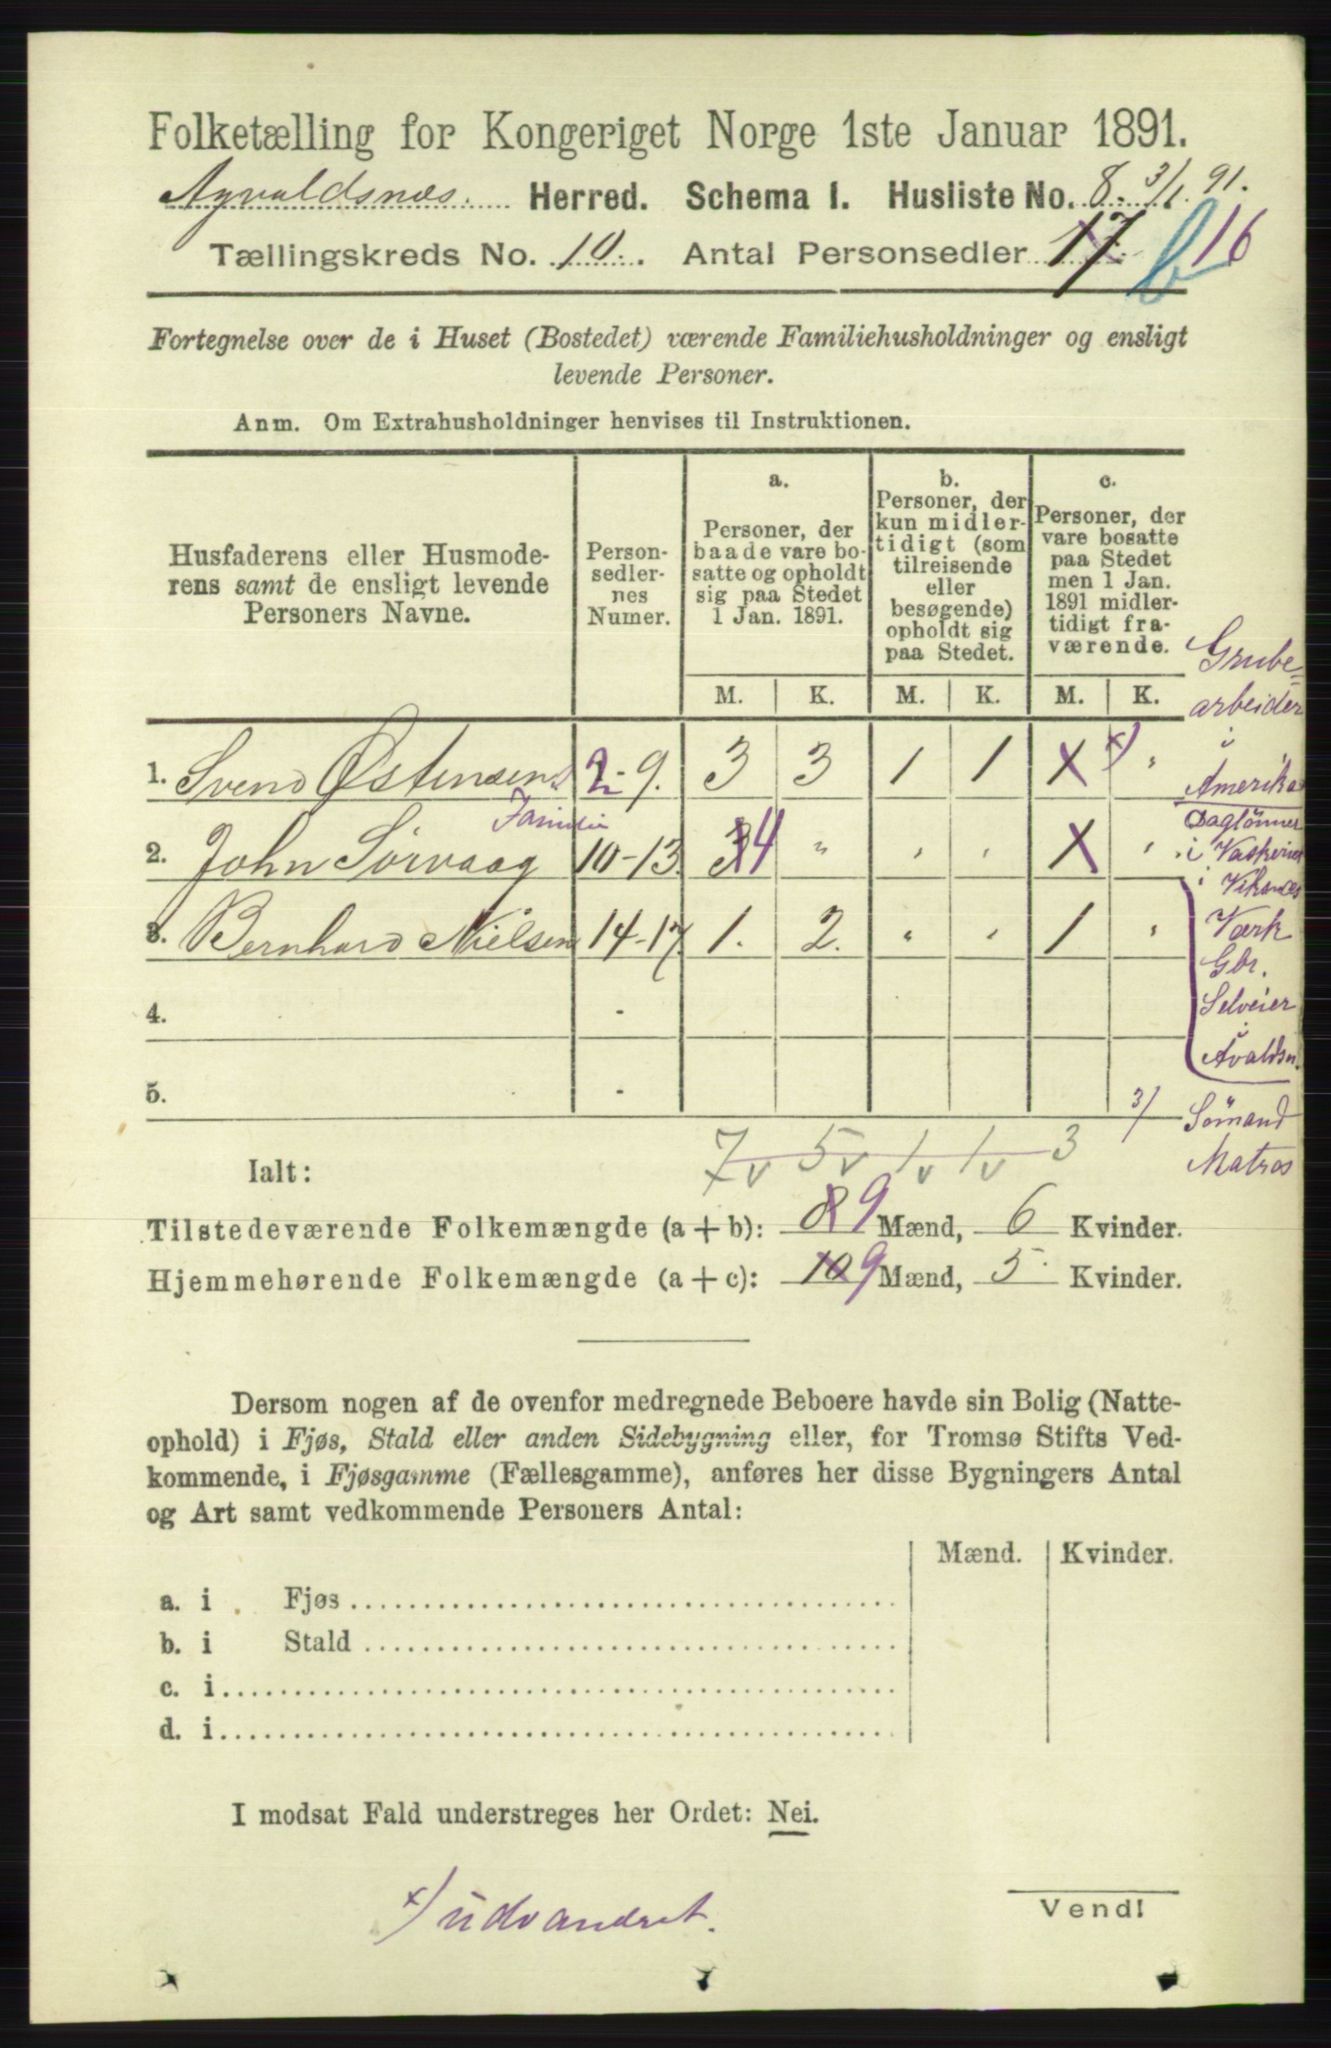 Folketælling for Kongeriget Norge 1ste Januar 1891.
Agvaldsnæs. Herred. Schema 1. Husliste No. 8. 3/1 91.
Tællingskreds No. 10. Antal Personsedler 17 b 16
Fortegnelse over de i Huset (Bostedet) værende Familiehusholdninger og ensligt
levende Personer.
Anm. Om Extrahusholdninger henvises til Instruktionen.
Husfaderens eller Husmode-
rens samt de ensligt levende
Personers Navne.
Person-
sedler-
nes
Numer.
a.
Personer, der
baade vare bo-
satte og opholdt
sig paa Stedet
1 Jan. 1891.
b.
Personer, der
kun midler-
tidigt (som
tilreisende
eller
besøgende)
opholdt sig
paa Stedet.
c.
Personer, der
vare bosatte
paa Stedet
men 1 Jan.
1891 midler-
tidigt fra-
værende.
M. K. M. K. M. K.
Grube=
arbeider
i
Amerika
1. Svend Østensens 2-9. 3 3 1 1 X x) "
Familie
2. John Sörvaag 10-13. 4 " " " X "
3. Bernhard Nielsen 14-17. 1. 2. " " 1 "
4. -
5. -
Daglönner
i Vaskeriet
i Vikanes
Værk
Gbr.
Selveier
i
Avaldsn.
3/ Sömand
Matros
7 5 1 1 3
v v v v
Ialt:
Tilstedeværende Folkemængde (a + b): 8 9 Mænd, 6 Kvinder.
Hjemmehørende Folkemængde (a + c): 10 9 Mænd, 5. Kvinder.
Dersom nogen af de ovenfor medregnede Beboere havde sin Bolig (Natte-
ophold) i Fjøs, Stald eller anden Sidebygning eller, for Tromsø Stifts Ved-
kommende, i Fjøsgamme (Fællesgamme), anføres her disse Bygningers Antal
og Art samt vedkommende Personers Antal:
Mænd. Kvinder.
a. i Fjøs
b. i Stald
c. i
d. i
I modsat Fald understreges her Ordet: Nei.
x/ udvandret.
Vend!